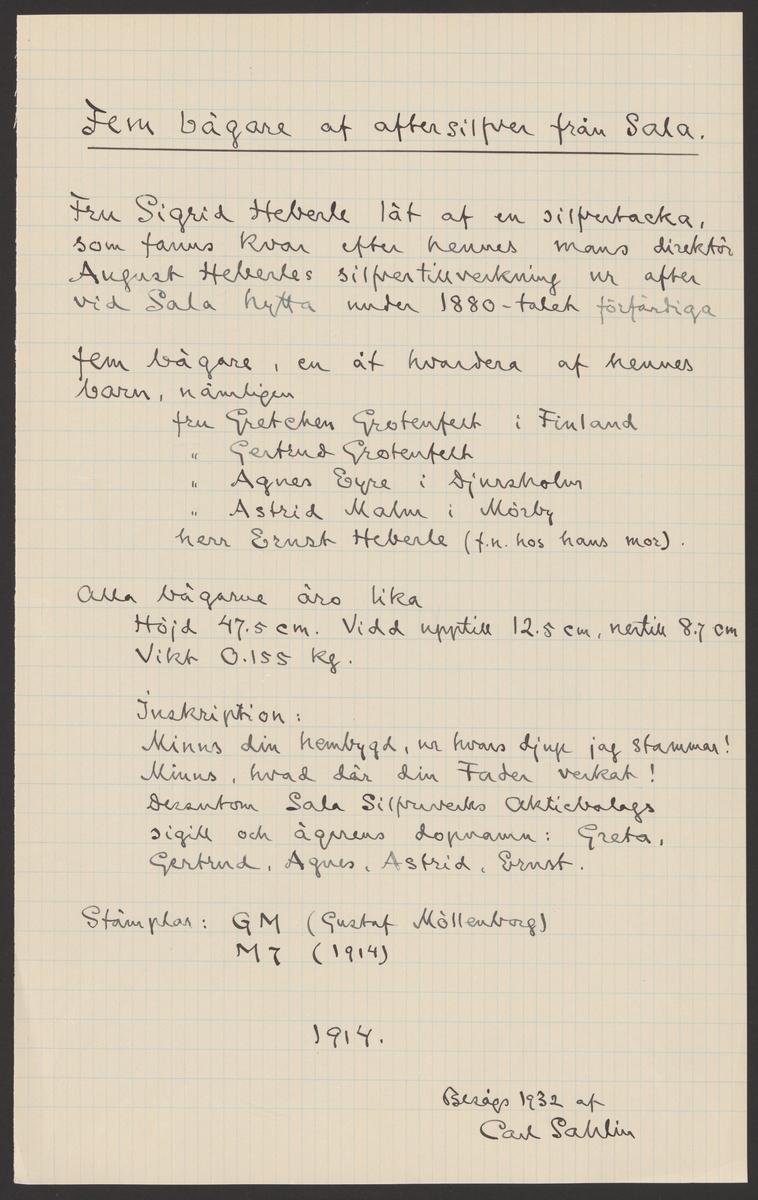 Fem bägare af aftersilfver från Sala.
Fru Sigrid Heberle lät af en silfvertacka,
som fanns kvar efter hennes mans direktör
August Heberles silfvertillverkning ur after
vid Sala hytta under 1880-talet förfärdiga
fem bägare, en åt hvardera af hennes
barn, nämligen
fru Gretchen Grotenfelt i Finland
" Gertrud Grotenfelt
" Agnes Eyre i Djursholm
" Astrid Malm i Mörby
herr Ernst Heberle (f.n. hos hans mor).
Alla bägarne äro lika
Höjd 47.5 cm. Vidd upptill 12.5 cm, nertill 8.7 cm
Vikt 0.155 kg.
Inskription:
Minns din hembygd, ur hvars djup jag stammar!
Minns, hvad där din Fader verkat!
Dessutom Sala Silfververks Aktiebolags
sigill och ägarens dopnamn: Greta,
Gertrud, Agnes, Astrid, Ernst.
Stämplar: GM (Gustaf Möllenborg)
M7 (1914)
1914.
Besågs 1932 af
Carl Sahlin